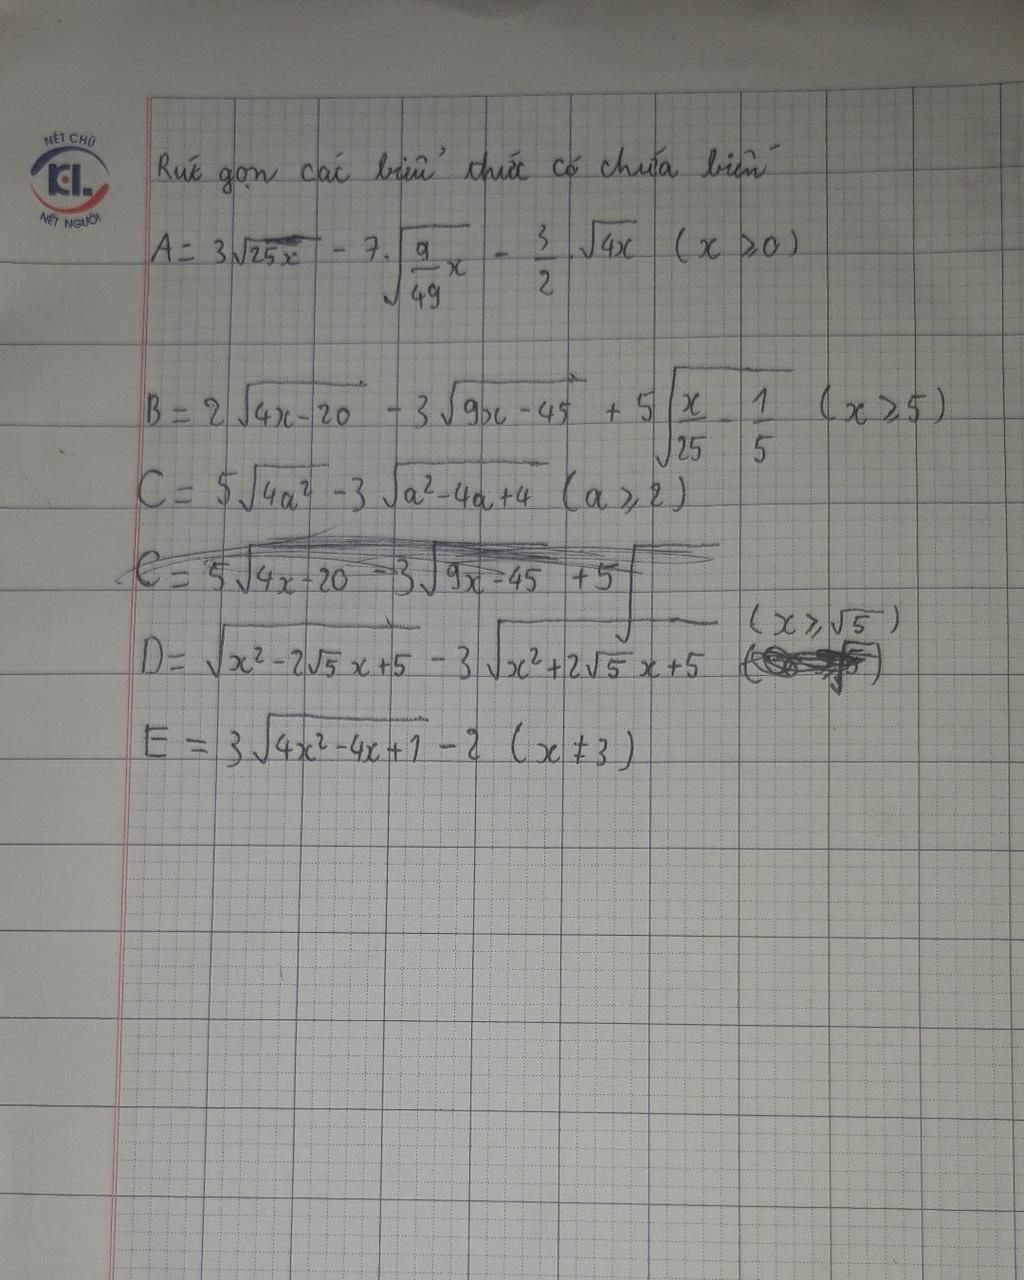 NÉT CHỮ
KCL.
NẾT NGƯỜI
Rút gọn các biểu thức có chứa biến
A = 3√25x - 7.√(9/49 x) - 3/2 . √4x (x ≥ 0)
B = 2√(4x-20) - 3√(9x-45) + 5√(x/25 - 1/5) (x ≥ 5)
C = 5√4a² - 3√(a²-4a+4) (a ≥ 2)
C = 5√(4x-20) - 3√(9x-45) + 5√
(x ≥ √5)
D = √(x²-2√5 x+5) - 3√(x²+2√5 x+5)
E = 3√(4x²-4x+1) - 2 (x ≠ 3)